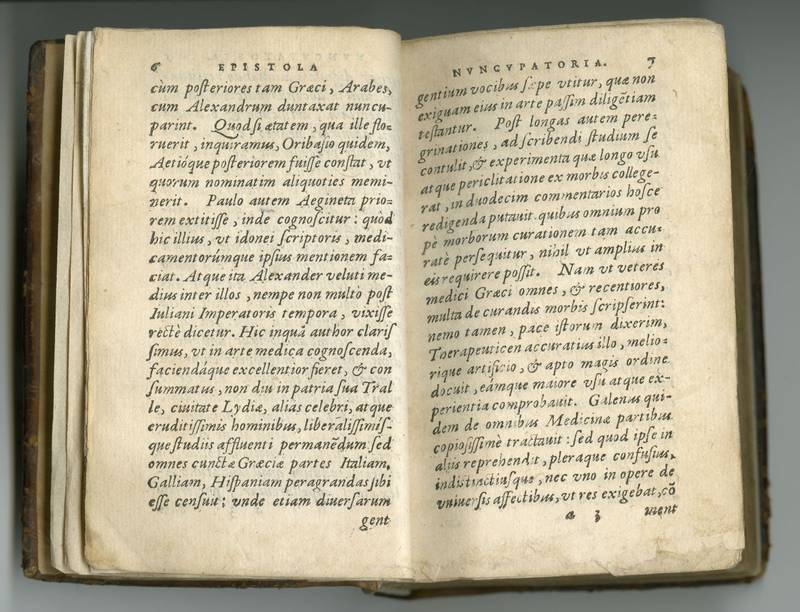 6 EPISTOLA
cùm posteriores tam Græci, Arabes,
cum Alexandrum duntaxat nuncu-
parint. Quod si ætatem, qua ille flo-
ruerit, inquiramus, Oribasio quidem,
Aetióque posteriorem fuisse constat, vt
quorum nominatim aliquoties memi-
nerit. Paulo autem Aegineta prio-
rem extitisse, inde cognoscitur: quòd
hic illius, vt idonei scriptoris, medi-
camentorúmque ipsius mentionem fa-
ciat. Atque ita Alexander veluti me-
dius inter illos, nempe non multò post
Iuliani Imperatoris tempora, vixisse
rectè dicetur. Hic inquā author claris
simus, vt in arte medica cognoscenda,
faciendáque excellentior fieret, & con
summatus, non diu in patria sua Tral
le, ciuitate Lydiæ, alias celebri, atque
eruditissimis hominibus, liberalissimís-
que studiis affluenti permanēdum sed
omnes cunctæ Græciæ partes Italiam,
Galliam, Hispaniam peragrandas sibi
esse censuit; vnde etiam diuersarum
gent
NVNCVPATORIA. 7
gentium vocibus sæpe vtitur, quæ non
exiguam eius in arte passim diligētiam
testantur. Post longas autem pere-
grinationes, ad scribendi studium se
contulit, & experimenta quæ longo vsu
atque periclitatione ex morbis college-
rat, in duodecim commentarios hosce
redigenda putauit. quibus omnium pro
pè morborum curationem tam accu-
ratè persequitur, nihil vt amplius in
eis requirere possit. Nam vt veteres
medici Græci omnes, & recentiores,
multa de curandis morbis scripserint:
nemo tamen, pace istorum dixerim,
Toerapeuticen accuratius illo, melio-
rique artificio, & apto magis ordine
docuit, eámque maiore vsu atque ex-
perientia comprobauit. Galenus qui-
dem de omnibus Medicinæ partibus
copiosissimè tractauit: sed quod ipse in
aliis reprehendit, pleraque confusius,
indistinctiusque, nec vno in opere de
vniuersis affectibus, vt res exigebat, cō
a 3 ment